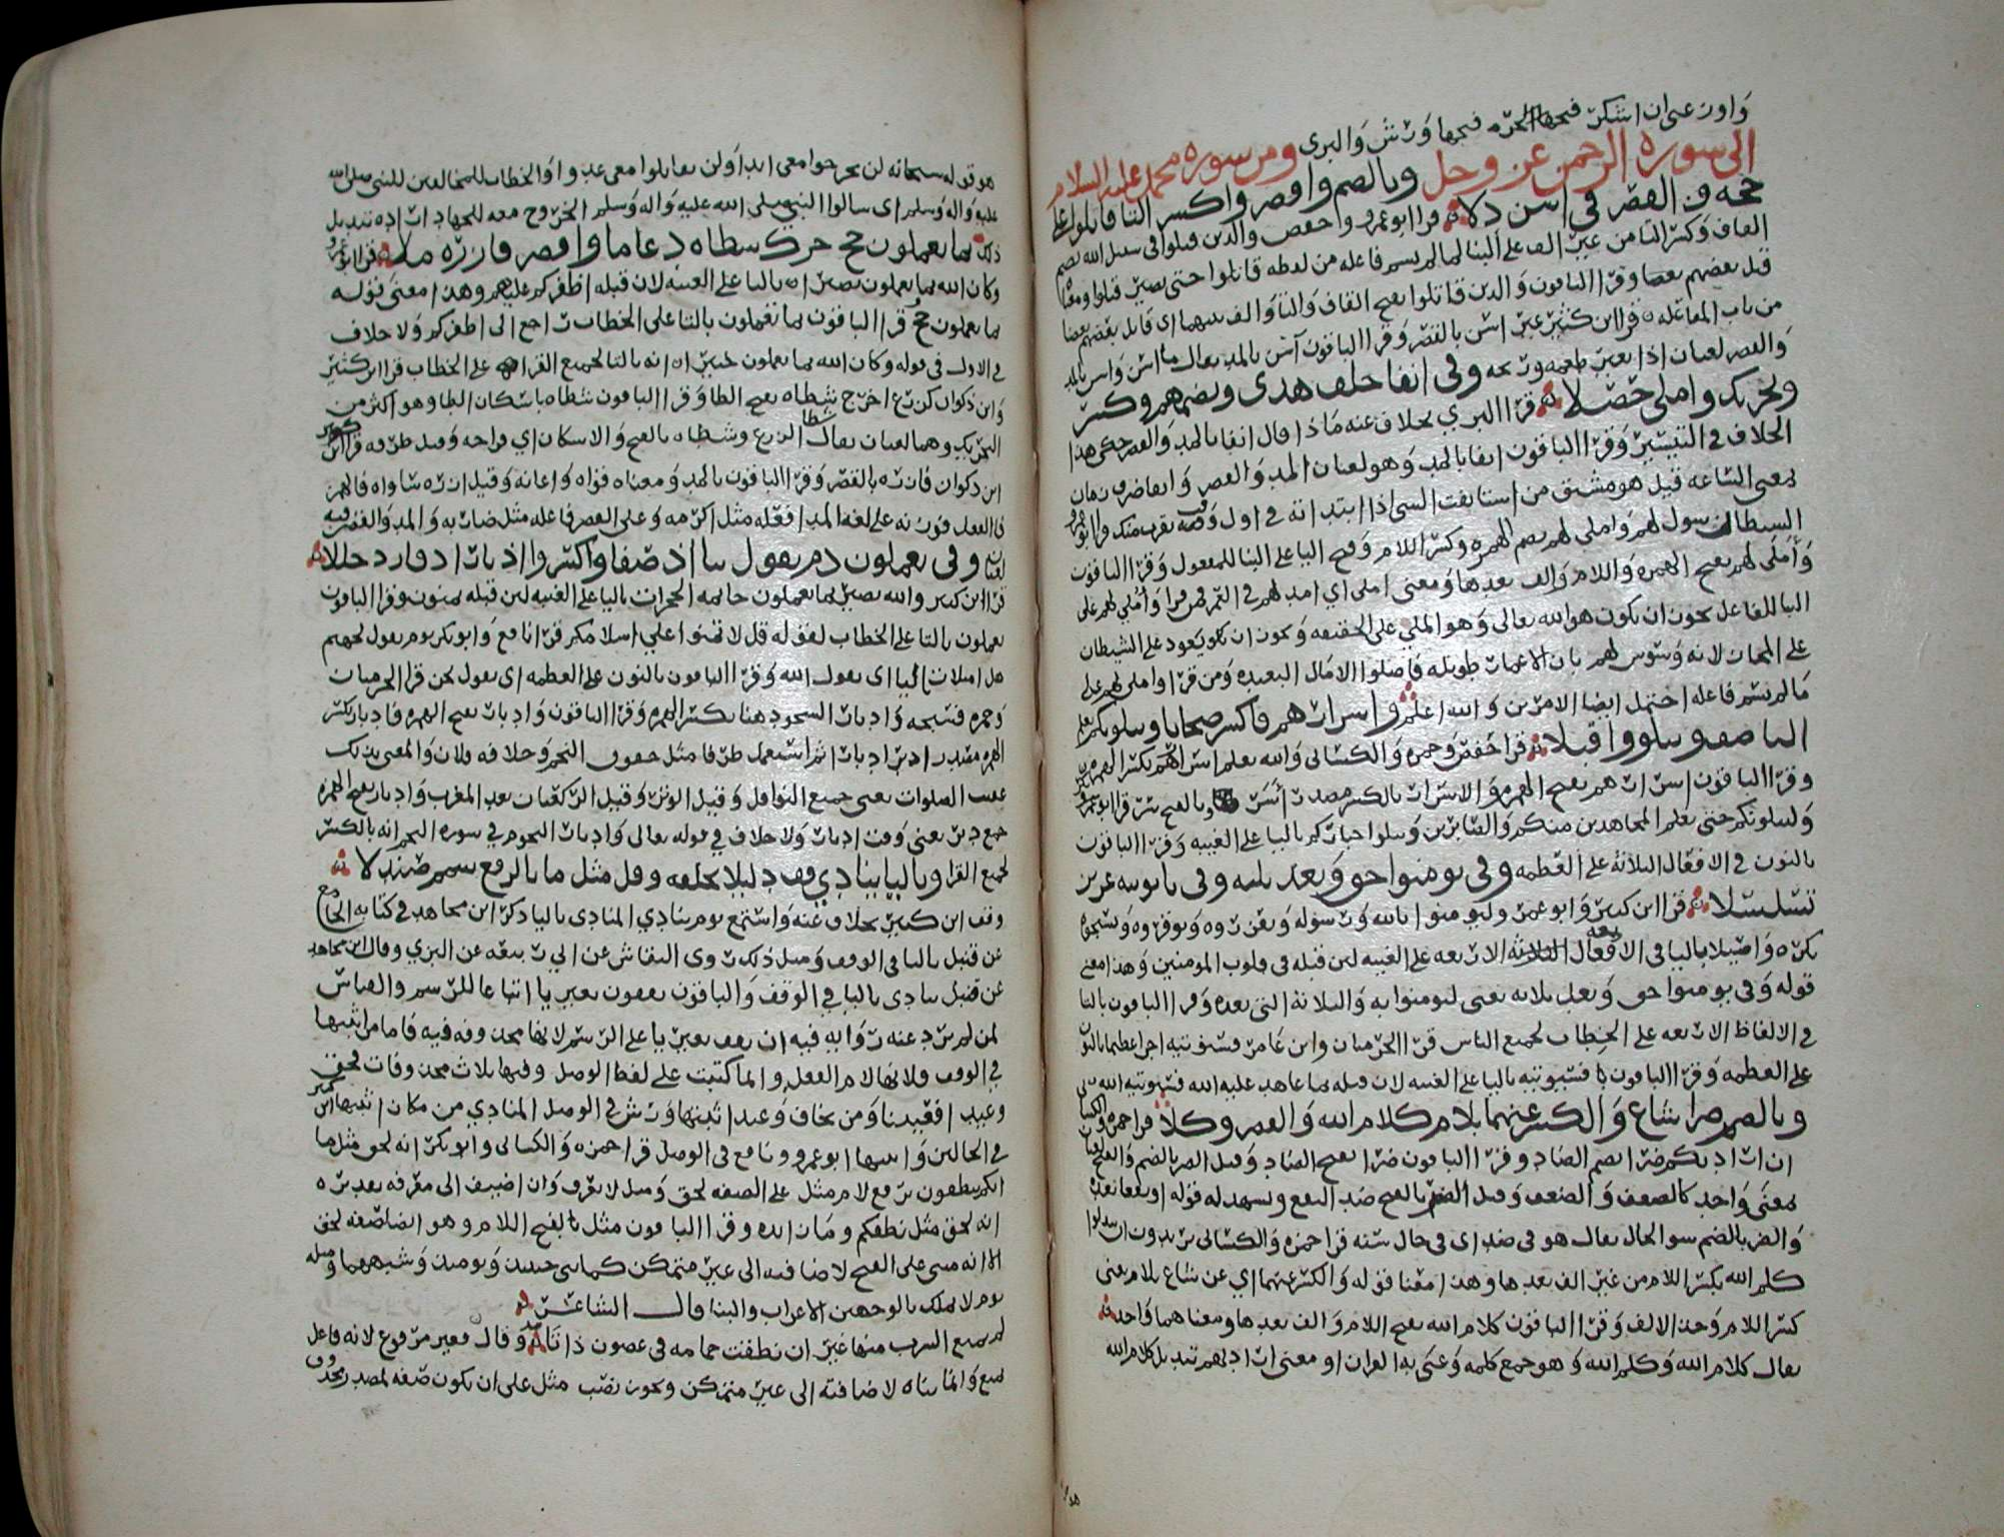 واوزعني ان اشكر فتحها الحرم فتحها ورش والبزي
ومن سوره محمد عليه السلام
الى سورة الرحمن عز وجل وبالضم واقصر واكسر التا قاتلوا على
حجه والقصر في اسن دلا قرا ابو عمرو وحفص والذين قتلوا في سبيل الله بضم
القاف وكسر التا من غير الف على البنا لما لم يسم فاعله من لفظه قاتلوا حتى يصير قتلوا ومعناه
قتل بعضهم بعضا وقرا الباقون والذين قاتلوا بفتح القاف والتا والف بينهما اى قاتل بعضهم بعضا
من باب المفاعله قرا ابن كثير غير اسن بالقصر وقرا الباقون آسن بالمد يقال ما اسن واسن بالمد
والقصر لغتان اذا تغير طعمه وريحه وفي انفا خلف هدى وبضمهم وكسر
وتحريك واملي حصلا قرا البزي بخلاف عنه ماذا قال انفا بالمد والقصر حكى هذا
الخلاف في التيسير وقرا الباقون انفا بالمد وهو لغتان المد والقصر
بمعنى الساعه قيل هو مشتق من استانفت الشي اذا ابتداته في اول وقت يقرب منك قرا ابو عمرو
الشيطان سول لهم واملي لهم بضم الهمزه وكسر اللام وفتح اليا على البنا للمفعول وقرا الباقون
وأملى لهم بفتح الهمزه واللام والف بعدها ومعنى املى اي امد لهم في العمر فمن قرا وأملي لهم على
البنا للفاعل يجوز ان يكون هو الله تعالى وهو المملي على الحقيقه ويجوز ان يكون يعود على الشيطان
على المجاز لانه وسوس لهم بان الاعمار طويله فاصلوا الامال البعيده ومن قرا واملي لهم على
ما لم يسم فاعله احتمل ايضا الامرين والله اعلم واسرارهم فاكسر صحابا ونبلونكم نعلم
اليا صف ونبلو واقبلا قرا حفص وحمزه والكسائى والله يعلم اسرارهم بكسر الهمزه
وقرا الباقون اسرارهم بفتح الهمزه والاسرار بالكسر مصدر أسر وبالفتح سر قرا ابو بكر
وليبلونكم حتى يعلم المجاهدين منكم والصابرين ويبلوا اخباركم باليا على الغيبه وقرا الباقون
بالنون في الافعال الثلاثة على العظمه وفي يومنوا حق وبعد ثلثه وفي يا يوتيه غدير
تسلسلا قرا ابن كثير وابو عمرو وليومنوا بالله ورسوله ويعزروه ويوقروه ويسبحوه
بكره واصيلا باليا في الافعال الاربعه على الغيبه لان قبله في قلوب المومنين وهذا معنى
قوله وفي يومنوا حق وبعد ثلاثه يعنى ليومنوا به والثلاثة التى بعده وقرا الباقون بالتا
في الالفاظ الاربعه على الخطاب لجميع الناس قرا الحرميان وابن عامر فسنوتيه اجرا عظيما بالنون
على العظمه وقرا الباقون فسيوتيه باليا على الغيبه لان قبله بما عاهد عليه الله فسيوتيه الله
وبالضم ضرا شاع والكسر عنهما بلام كلام الله والقصر وكلا قرا حمزه والكسائي
ان اراد بكم ضرا بضم الضاد وقرا الباقون ضرا بفتح الضاد وقيل الضر بالضم والفتح لغتان
بمعنى واحد كالضعف والضعف وقيل الضر بالفتح ضد النفع ويشهد له قوله او نفعا بعده
والضر بالضم سو الحال يقال هو في ضر اى في حال سيئه قرا حمزه والكسائى يريدون ان يبدلوا
كلم الله بكسر اللام من غير الف بعدها وهذا معنا قوله والكسر عنهما اي عن شاع بلام يعنى
كسر اللام وحذف الالف وقرا الباقون كلام الله بفتح اللام والف بعدها ومعناهما واحد
يقال كلام الله وكلم الله وهو جمع كلمه وعنى به القران او معنى ارادتهم تبديل كلام الله
هو قوله سبحانه لن تخرجوا معي ابدا ولن تقاتلوا معي عدوا والخطاب للمخالفين للنبي صلى الله
عليه واله وسلم اى سالوا النبي صلى الله عليه واله وسلم الخروج معه للجهاد اراده تبديل
ذلك بما يعملون حج حرك شطاه دعا ماجد واقصر فازره ملا قرا ابو عمرو
وكان الله بما يعملون بصيرا باليا على الغيبه لان قبله اظفركم عليهم وهذا معنى قوله
بما يعملون حج قرا الباقون بما تعملون بالتا على الخطاب راجع الى اظفركم ولا خلاف
في الاول في قوله وكان الله بما تعملون خبيرا انه بالتا لجميع القرا على الخطاب قرا ابن كثير
وابن ذكوان كزرع اخرج شطاه بفتح الطا وقرا الباقون شطاه باسكان الطا وهو اكثر من
التحريك وهما لغتان يقال شطا الزرع وشطاه بالفتح والاسكان اي فراخه وقيل طرفه قرا
ابن ذكوان فازره بالقصر وقرا الباقون بالمد ومعناه قواه واعانه وقيل ازره ساواه فالهمز
فا الفعل فوزنه على لغه المد افعله مثل اكرمه وعلى القصر فاعله مثل ضاربه والمد والقصر فيه
لغتان وفي يعملون دم يقول بيا اذ صفا واكسروا ادبار اذ فاز دخللا
قرا ابن كثير والله بصير بما يعملون خاتمه الحجرات باليا على الغيبه لان قبله يمنون وقرا الباقون
تعملون بالتا على الخطاب لقوله قل لا تمنوا علي اسلامكم قرا نافع وابو بكر يوم يقول لجهنم
هل امتلات باليا اى يقول الله وقرا الباقون بالنون على العظمه اى يقول نحن قرا الحرميان
وحمزه فسبحه وادبار السجود هنا بكسر الهمزه وقرا الباقون وادبار بفتح الهمزه فادبار بكسر
الهمزه مصدر ادبر ادبارا ثم استعمل ظرفا مثل خفوق النجم وخلافه فلان والمعنى بذلك
عقب الصلوات يعنى جميع النوافل وقيل الوتر وقيل الركعتان بعد المغرب وادبار بفتح الهمزه
جمع دبر يعنى وقت ادبار ولا خلاف في قوله تعالى وادبار النجوم في سورة النجم انه بالكسر
لجميع القرا وباليا ينادي قف دليلا بخلفه وقل مثل ما بالرفع شمم صندلا
وقف ابن كثير بخلاف عنه واستمع يوم ينادي المنادى باليا ذكر ابن مجاهد في كتابه الجامع
عن قنبل باليا في الوقف وقيل ذلك روى النقاش عن ابي ربيعه عن البزي وقال ابن مجاهد
عن قنبل ينادى باليا في الوقف والباقون يقفون بغير يا اتباعا للرسم والقياس
لمن لم يرد عنه روايه فيه ان يقف بغير يا على الرسم لانها محذوفه فيه فاما من اثبتها
في الوقف فلانها لام الفعل وانما كتبت على لفظ الوصل وفيها ثلاث محذوفات لحق
وعيد افعيينا ومن يخاف وعيد اثبتها ورش في الوصل المنادي من مكان اثبتها ابن كثير
في الحالين واثبتها ابو عمرو ونافع في الوصل قرا حمزه والكسائى وابو بكر انه لحق مثل ما
انكم تنطقون برفع لام مثل على الصفه لحق ومثل لا يتعرف وان اضيف الى معرفه تقديره
انه لحق مثل نطقكم وما زايده وقرا الباقون مثل بفتح اللام وهو ايضا صفه لحق
الا انه مبنى على الفتح لاضافته الى غير متمكن كما بنى حينئذ ويومئذ وشبههما ومثله
يوم لا يملك بالوجهين الاعراب والبنا قال الشاعر
لم يمنع الشرب منها غير ان نطقت حمامه في غصون ذات وقال فغير مرفوع لانه فاعل
يمنع وانما بناه لاضافته الى غير متمكن ويجوز نصب مثل على ان يكون صفه لمصدر محذوف